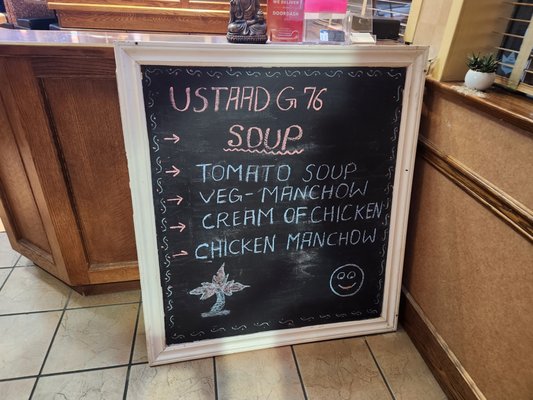 DOORDASH
USTAAD G 76
SOUP
→ TOMATO SOUP
→ VEG-MANCHOW
→ CREAM OF CHICKEN
→ CHICKEN MANCHOW